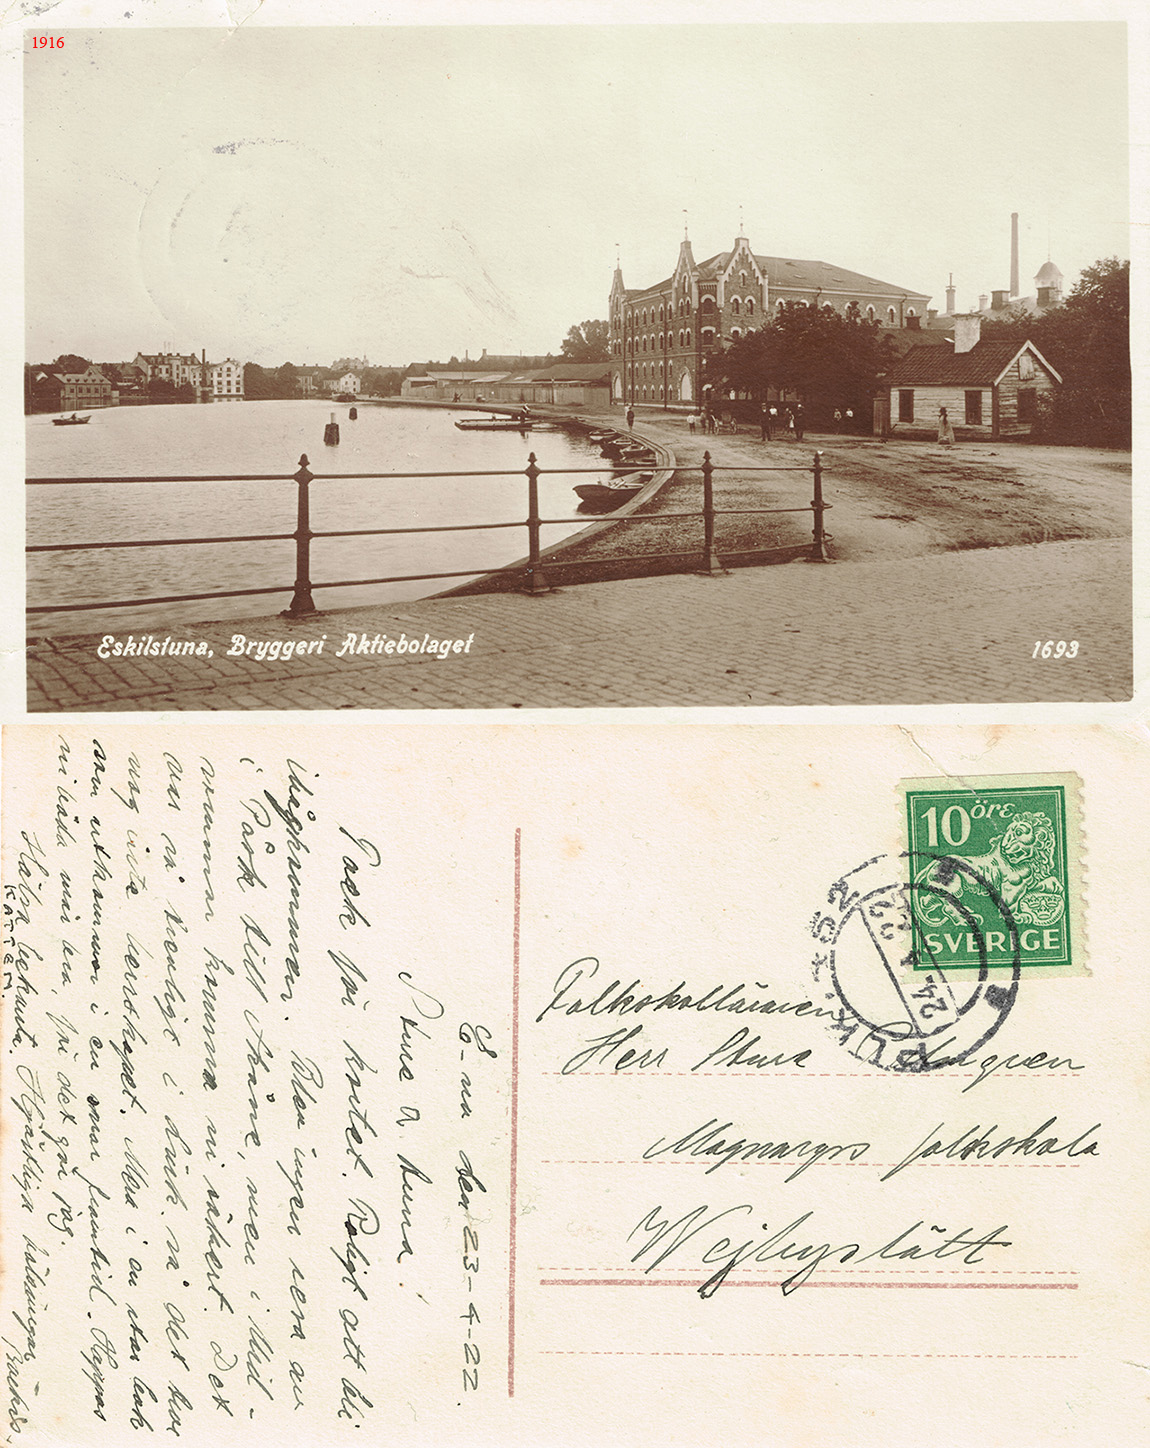 1916
Eskilstuna, Bryggeri Aktiebolaget
1693
10 öre
SVERIGE
PUK. 452
24 4 22
Folkskolläraren
Herr Sture
Magnarps folkskola
Wejbyslätt
E-na den 23-4-22.
Sture o. Runa!
Tack för kortet. Roligt att bli
ihågkommen. Blev ingen resa av
i Påsk till Skåne, men i Mid-
sommar komma ni säkert. Det
var så trevligt i
nog inte berövat. Men i en
som utkommer i en snar framtid. Hoppas
ni båda mår bra, för det gör jag.
Hälsa bekanta. Hjärtliga hälsningar